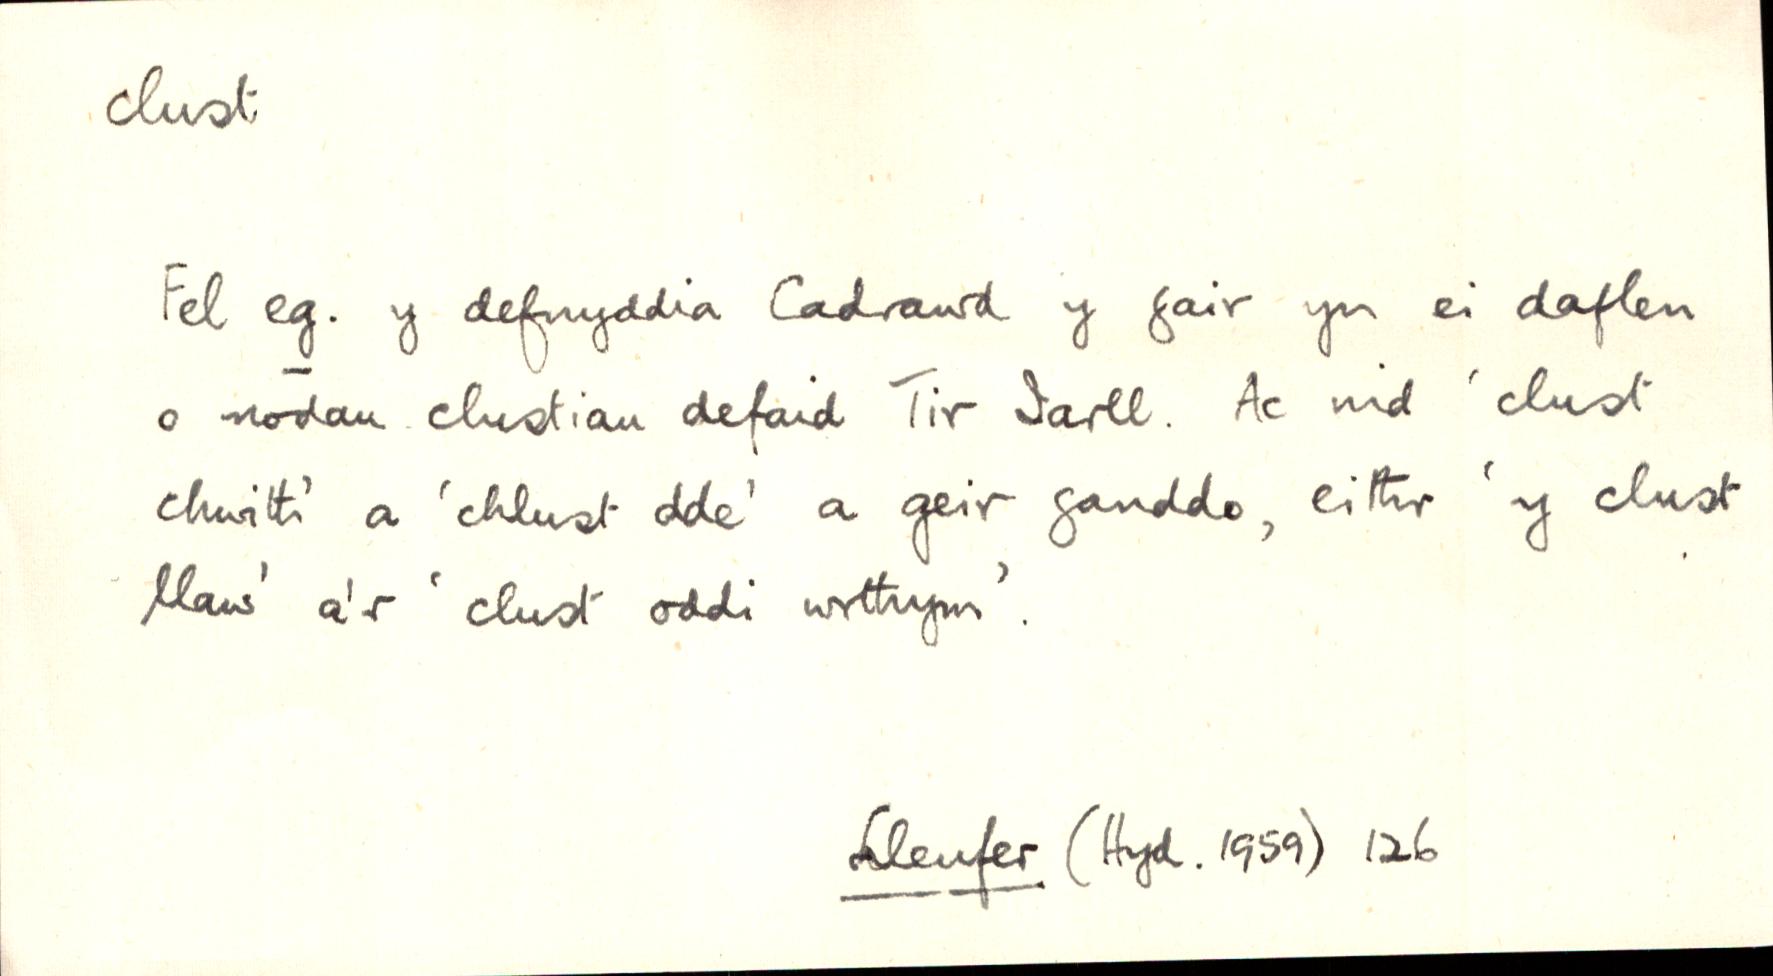 clust
Fel eg. y defnyddia Cadrawd y gair yn ei daflen
o nodau clustiau defaid Tir Iarll. Ac nid 'clust
chwith' a 'chlust dde' a geir ganddo, eithr 'y clust
llaw' a'r 'clust oddi wrthym'.
Lleufer (Hyd. 1959) 126